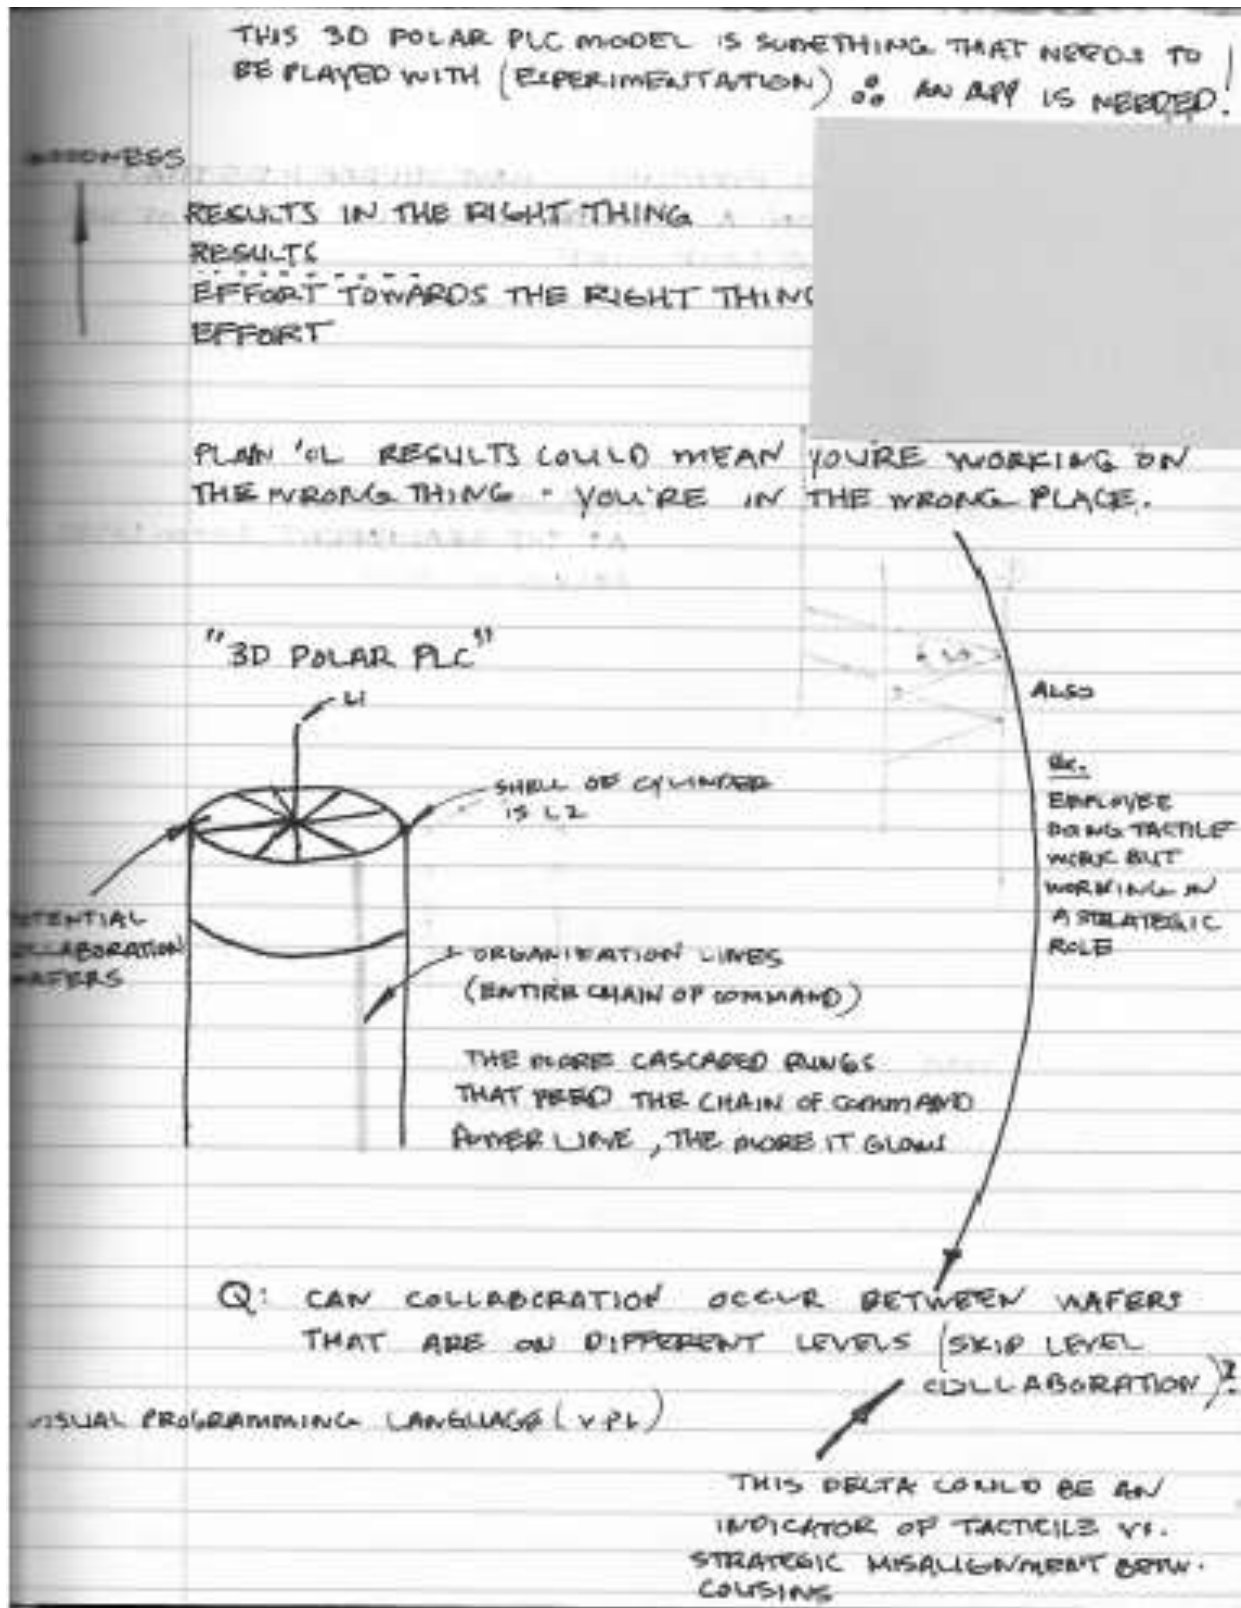 THIS 3D POLAR PLC MODEL IS SOMETHING THAT NEEDS TO
BE PLAYED WITH (EXPERIMENTATION) ∴ AN APP IS NEEDED!
GOODNESS
RESULTS IN THE RIGHT THING
RESULTS
EFFORT TOWARDS THE RIGHT THING
EFFORT
PLAIN 'OL RESULTS COULD MEAN YOU'RE WORKING ON
THE WRONG THING - YOU'RE IN THE WRONG PLACE.
"3D POLAR PLC"
L1
SHELL OF CYLINDER
IS L2
POTENTIAL
COLLABORATION
WAFERS
ORGANIZATION LINES
(ENTIRE CHAIN OF COMMAND)
THE MORE CASCADED RUNGS
THAT FEED THE CHAIN OF COMMAND
POWER LINE, THE MORE IT GLOWS
ALSO
EX.
EMPLOYEE
DOING TACTILE
WORK BUT
WORKING IN
A STRATEGIC
ROLE
Q: CAN COLLABORATION OCCUR BETWEEN WAFERS
THAT ARE ON DIFFERENT LEVELS (SKIP LEVEL
COLLABORATION)?
VISUAL PROGRAMMING LANGUAGE (VPL)
THIS DELTA COULD BE AN
INDICATOR OF TACTICILE VS.
STRATEGIC MISALIGNMENT BETW.
COUSINS